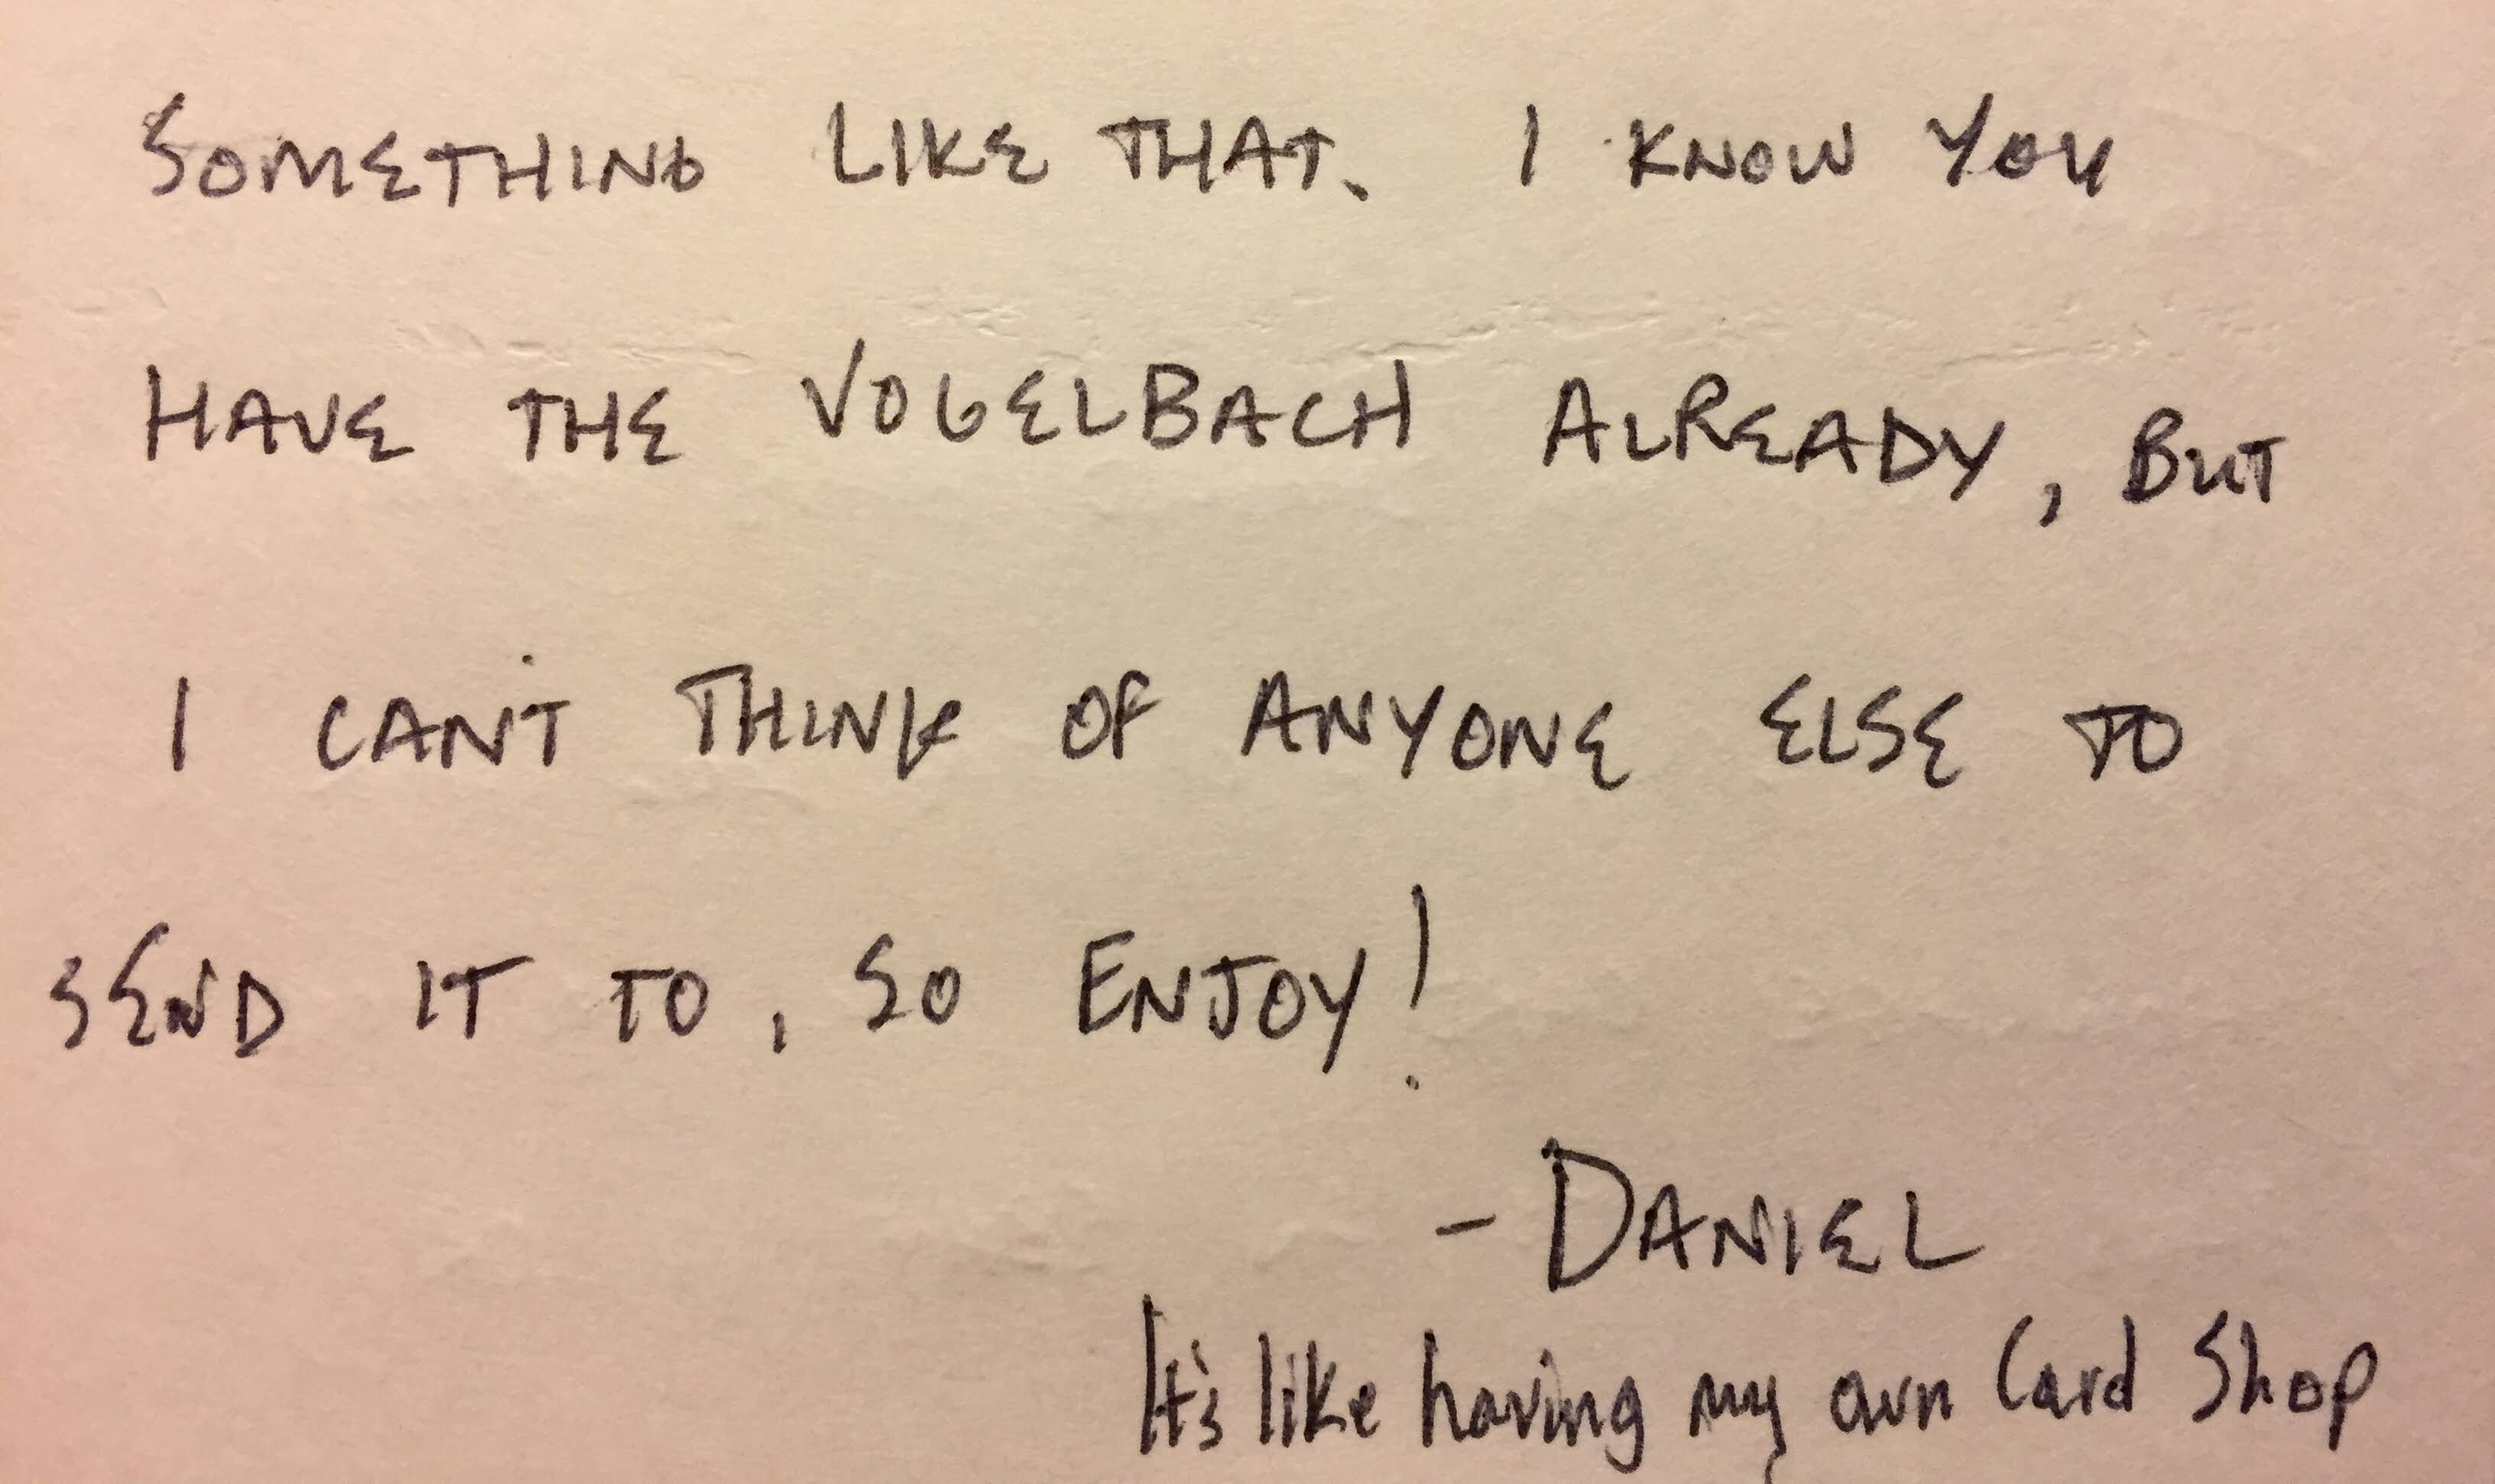 SOMETHING LIKE THAT. I KNOW YOU
HAVE THE VOGELBACH ALREADY, BUT
I CAN'T THINK OF ANYONE ELSE TO
SEND IT TO, SO ENJOY!
- DANIEL
It's like having my own Card Shop